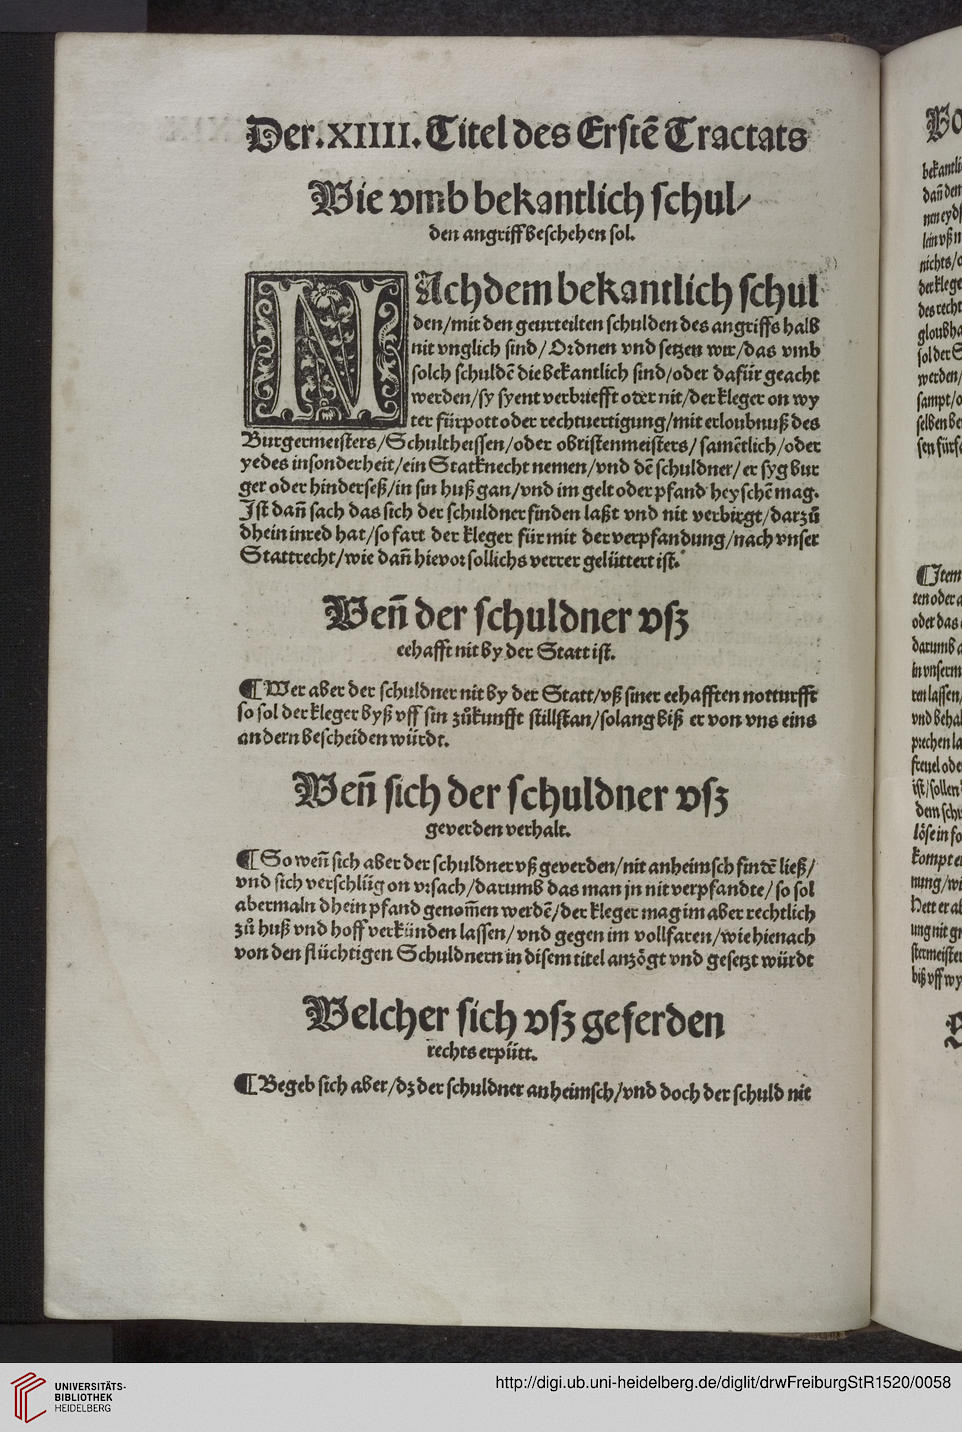 Der.XIIII.Titel des Erstẽ Tractats
Wie vmb bekantlich schul⸗
den angriff beschehen sol.
NAchdem bekantlich schul
den/mit den geurteilten schulden des angriffs halb
nit vnglich sind/Ordnen vnd setzen wir/das vmb
solch schuldẽ die bekantlich sind/oder dafür geacht
werden/sy syent verbriefft oder nit/der kleger on wy
ter fürpott oder rechtuertigung/mit erloubnuß des
Burgermeisters/Schultheissen/oder obristenmeisters/samẽtlich/oder
yedes insonderheit/ein Statknecht nemen/vnd dẽ schuldner/er syg bur
ger oder hinderseß/in sin huß gan/vnd im gelt oder pfand heyschẽ mag.
Ist dañ sach das sich der schuldner finden laßt vnd nit verbirgt/darzů
dhein inred hat/so fart der kleger für mit der verpfandung/nach vnser
Stattrecht/wie dañ hievor sollichs verrer gelüttert ist.
Weñ der schuldner vsz
eehafft nit by der Statt ist.
¶ Wer aber der schuldner nit by der Statt/vß siner eehafften notturfft
so sol der kleger byß vff sin zůkunfft stillstan/solang biß er von vns eins
andern bescheiden würdt.
Weñ sich der schuldner vsz
geverden verhalt.
¶ So weñ sich aber der schuldner vß geverden/nit anheimsch findẽ ließ/
vnd sich verschlüg on vrsach/darumb das man jn nit verpfandte/so sol
abermaln dhein pfand genom̃en werdẽ/der kleger mag im aber rechtlich
zů huß vnd hoff verkünden lassen/vnd gegen im vollfaren/wie hienach
von den flüchtigen Schuldnern in disem titel anzögt vnd gesetzt würdt
Welcher sich vsz geferden
rechts erpütt.
¶ Begeb sich aber/dz der schuldner anheimsch/vnd doch der schuld nit
Vo
bekantli
dañ den
nen eyds
lein vß n
nichts/o
der klege
des recht
gloubha
sol der S
werden/
sampt/o
selben be
sen fürs
¶ Item
ten oder a
oder das
darumb a
in vnserm
ren lassen/
vnd behal
prechen la
freuel ode
ist/sollen
dem schu
löse in so
kompt er
nung/wi
Hett er ab
ung nit gn
stermeister
biß vff wy
UNIVERSITÄTS-
BIBLIOTHEK
HEIDELBERG
http://digi.ub.uni-heidelberg.de/diglit/drwFreiburgStR1520/0058